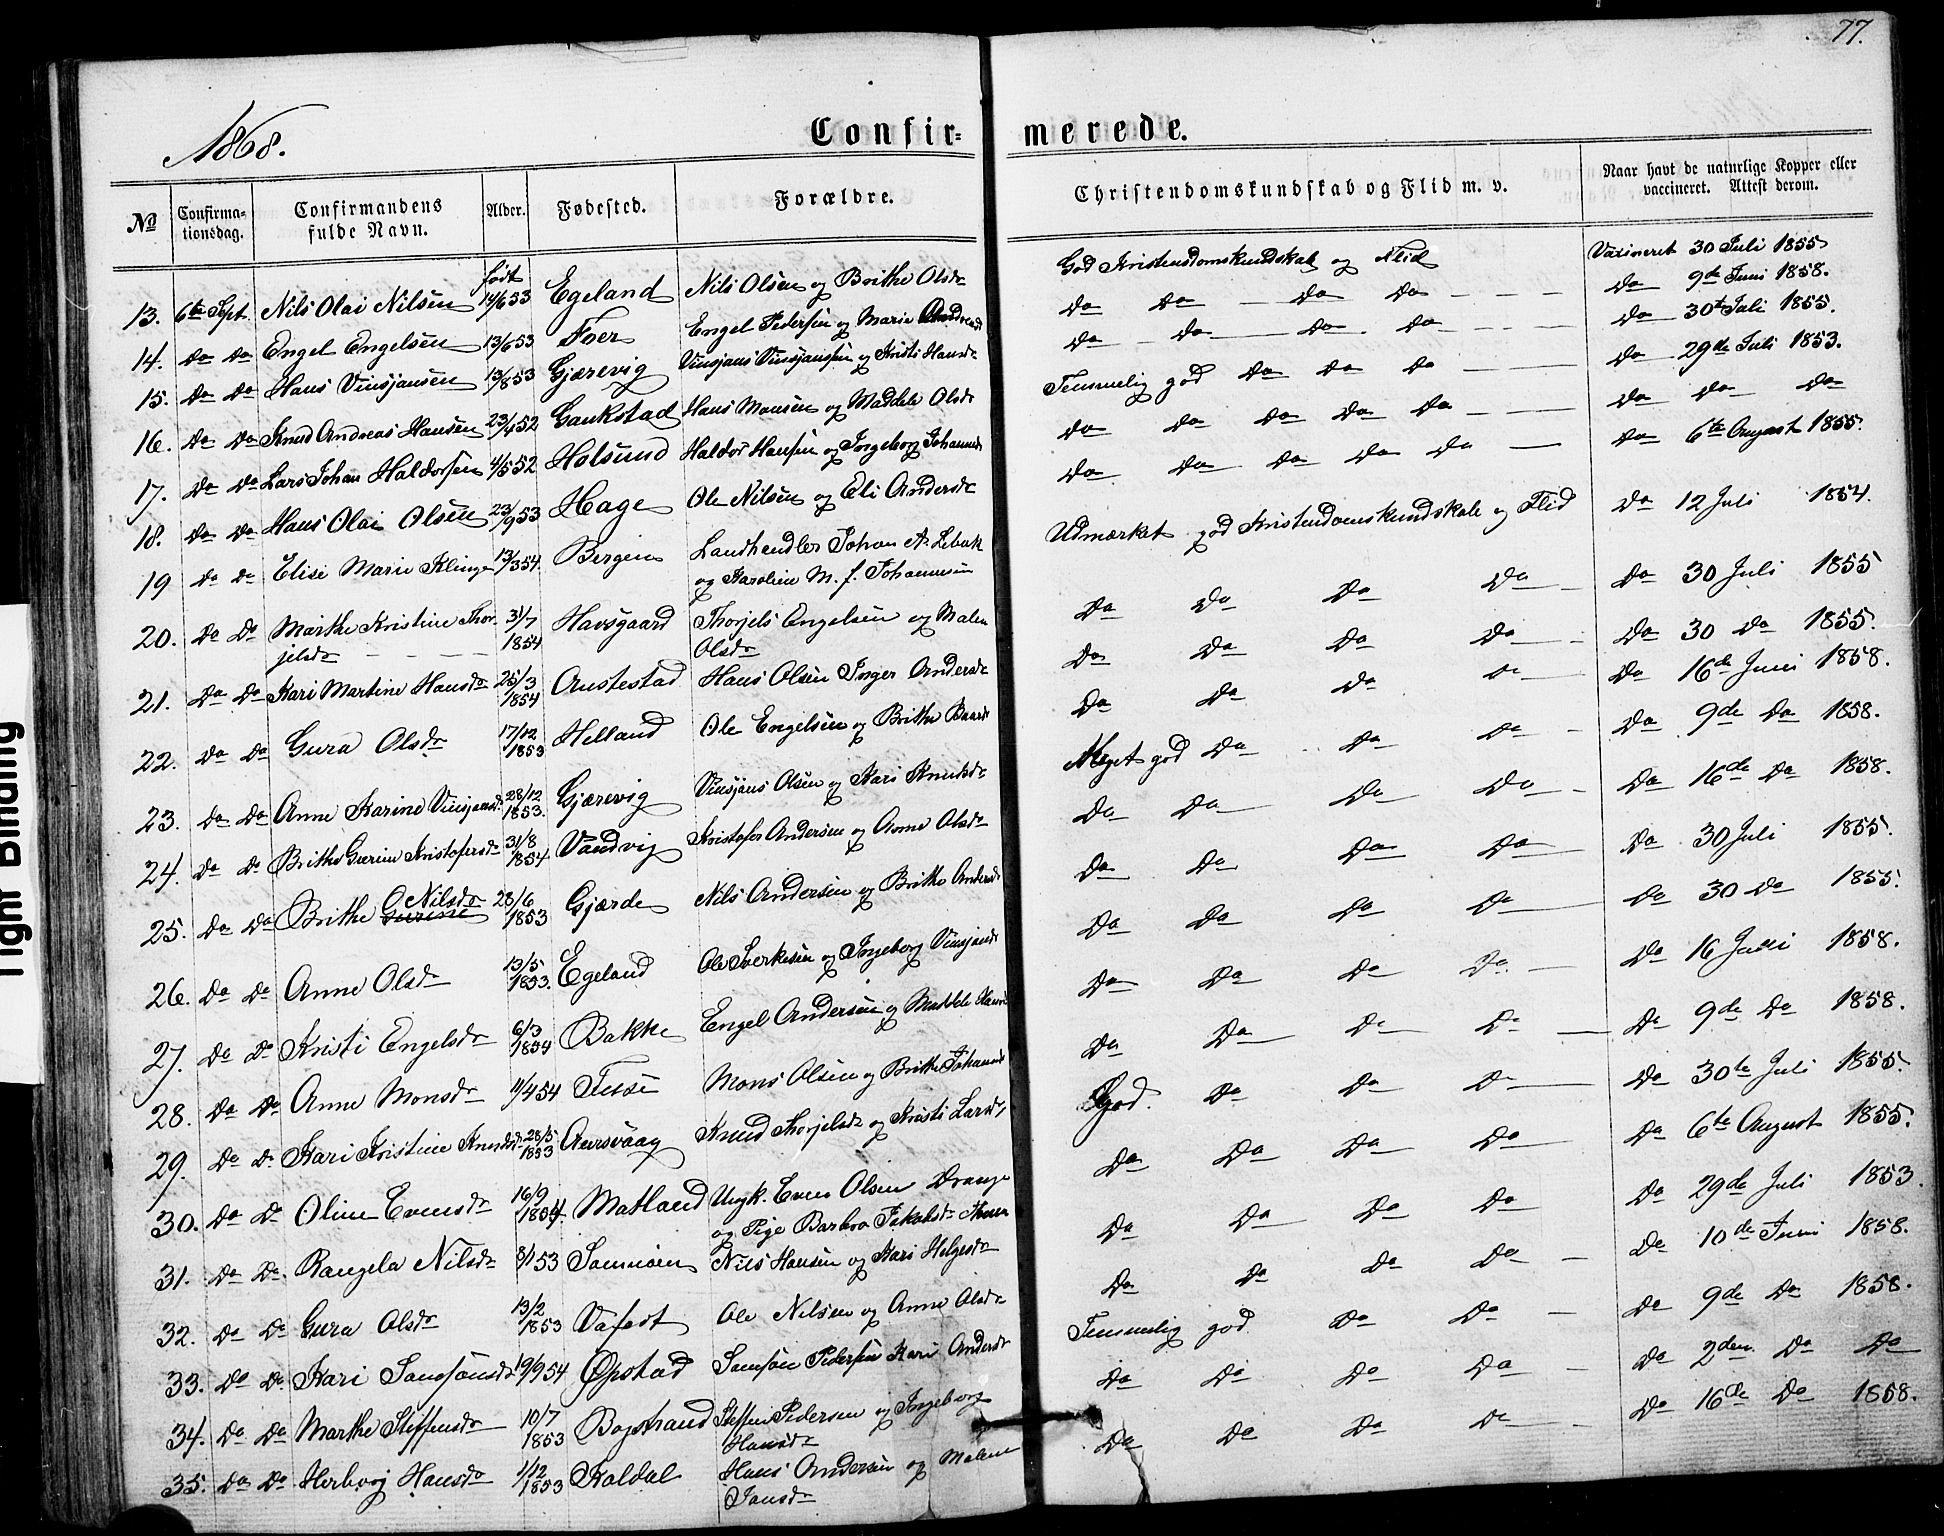 77.
1868.
Confir- merede.
No Confirma-tionsdag. Confirmandens fulde Navn. Alder. Fødested. Forældre. Christendomskundskab og Flid m. v. Naar havt de naturlige Kopper eller vaccineret. Attest derom.
født
13. 6te Sept. Nils Olai Nilsen 14/6 53 Egeland Nils Olsen og Brithe Olsdr God Kristendomskundskab og Flid Vaxineret 30 Juli 1855
14. Do Do Engel Engelsen 13/6 53 Foer Engel Pedersen og Marie Do Do — Do Do Do 9de Juni 1858.
15. Do Do Hans Vinsjansen 13/8 53 Gjærevig Vinsjans Vinsjansen og Kristi Hansdr Do Do Do Do Do 30te Juli 1855.
16. Do Do Knud Andreas Hansen 23/4 52 Gaukstad Hans Monsen og Maddele Olsdr Temmelig god Do Do Do Do 29de Juli 1853.
17. Do Do Lars Johan Haldorsen 4/5 52 Holsund Haldor Hansen og Ingeborg Johannsd Do Do Do Do Do Do Do Do
18. Do Do Hans Olai Olsen 23/9 53 Hage Ole Nilsen og Eli Andersdr Do Do Do Do Do Do 6te August 1855.
19 Do Do Elise Marie Klinge 13/3 54. Bergen Landhendler Johan A. Lebak Udmærket god Kristendomskundskab og Flid Do 12 Juli 1854.
og Karoline M. f. Johannesen
20. Do Do Marthe Kristine Thor- 31/7 Havsgaard Thorjels Engelsen og Malen Do Do Do Do Do 30 Juli 1855
jelsdr 1854 Olsdr
21. Do Do Kari Martine Hansdr 25/3 1854 Austestad Hans Olsen Inger Andersdr Do Do Do Do Do 30 Do 1855.
22. Do Do Gura Olsdr 17/12 1853 Helland Ole Engelsen og Brithe Baardr Do Do Do Do Do 16de Juni 1858.
23. Do Do Anne Karine Vinsjansd. 28/12 1853. Gjærevig Vinsjans Olsen og Kari Knudsdr Meget god Do Do Do Do 9de Do 1858.
24. Do Do Brithe Gurine Kristofersdr 31/8 1854 Vandvig Kristofer Andersen og Anne Olsdr Do Do Do Do Do 16de Do 1858.
25. Do Do Brithe Gurine Nilsdr 28/6 1853 Gjærde Nils Andersen og Brithe Andersd Do Do Do Do Do 30 Juli 1855.
26. Do Do Anne Olsdr 13/5 1853. Egeland Ole Sverkesen og Ingeborg Vinsjansdr Do Do Do Do Do 30 Do 1855.
27. Do Do Kristi Engelsdr 6/3 1854 Bakke Engel Andersen og Maddele Hansd Do Do Do Do Do 16 Juni 1858.
28. Do Do Anne Monsdr 11/4 54 Tusø Mons Olsen og Brithe Johannsd Do Do Do Do Do 9de Do 1858.
29. Do Do Kari Kristine Knudsdr 28/5 1853 Aursvaag Knud Thorjelsdr og Kristi Larsdr God. Do Do Do Do 30te Juli 1855.
30. Do Do Oline Evensdr 16/9 1854. Matland Ungk. Even Olsen Drange Do Do Do Do Do 6te August 1855.
og Pige Barbro Jakobsdr
31. Do Do Rangela Nilsdr 8/1 53 Samnøen Nils Hansen og Kari Helgesdr Do Do Do Do Do 29de Juli 1853.
32. Do Do Gura Olsdr 13/2 1853 Vafest Ole Nilsen og Anne Olsdr Do Do Do Do Do 10de Juni 1858.
33. Do Do Kari Samsonsdr 19/9 54 Øpstad Samson Pedersen Kari Andersdr Temmelig god Do Do Do 9de Do 1858.
34. Do Do Marthe Steffensdr 10/7 1853 Bogstrand Steffen Pedersen og Ingeborg Do Do Do Do Do 2den Do Do
Hansdr
35. Do Do Herborg Hansdr 1/12 1853 Kaldal Hans Andersen og Malene Do Do Do Do Do 16de Do 1858.
Jansdr
Tight Binding